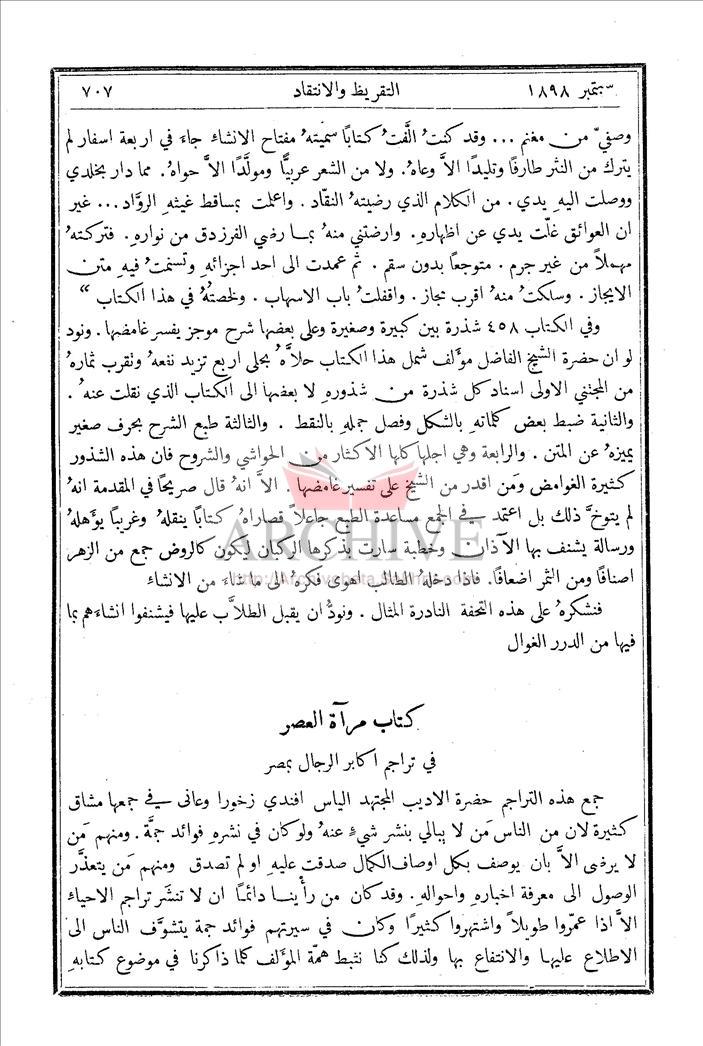 سبتمبر ١٨٩٨ التقريظ والانتقاد ٧٠٧
وصفيّ من مغنم ... وقد كنتُ الَّفتُ كتابًا سميتهُ مفتاح الانشاء جاءَ في اربعة اسفار لم
يترك من النثر طارفًا وتليدًا الاَّ وعاهُ. ولا من الشعر عربيًّا ومولَّدًا الاَّ حواهُ. مما دار بخلدي
ووصلت اليهِ يدي. من الكلام الذي رضيتهُ النقّاد. واعملت بمساقط غيثهِ الروَّاد ... غير
ان العوائق غلّت يدي عن اظهارهِ. وارضتني منهُ بما رضي الفرزدق من نوارهِ. فتركتهُ
مهملاً من غير جرم. متوجعًا بدون سقم. ثم عمدت الى احد اجزائهِ وتسنمتُ فيهِ متن
الايجاز. وسلكتُ منهُ اقرب مجاز. واقفلتُ باب الاسهاب. ولخصتُهُ في هذا الكتاب"
وفي الكتاب ٤٥٨ شذرة بين كبيرة وصغيرة وعلى بعضها شرح موجز يفسر غامضها. ونود
لو ان حضرة الشيخ الفاضل مؤلف شمل هذا الكتاب حلاَّهُ بحلى اربع تزيد نفعهُ وتقرب ثمارهُ
من المجتني الاولى اسناد كل شذرة من شذورهِ لا بعضها الى الكتاب الذي نقلت عنهُ.
والثانية ضبط بعض كلماتهِ بالشكل وفصل جملهِ بالنقط. والثالثة طبع الشرح بحرف صغير
يميزهُ عن المتن. والرابعة وهي اجلها كلها الاكثار من الحواشي والشروح فان هذه الشذور
كثيرة الغوامض ومَن اقدر من الشيخ على تفسير غامضها. الاَّ انهُ قال صريحًا في المقدمة انهُ
لم يتوخَّ ذلك بل اعتمد في الجمع مساعدة الطبع جاعلاً قصاراهُ كتابًا ينقلهُ وغريبًا يؤَهلهُ
ورسالة يشنف بها الآذان وخطبة سارت بذكرها الركبان ليكون كالروض جمع من الزهر
اصنافًا ومن الثمر اضعافًا. فاذا دخلهُ الطالب اهوى فكرهُ الى ما شاءَ من الانشاء
فنشكرهُ على هذه التحفة النادرة المثال. ونودُّ ان يقبل الطلاَّب عليها فيشنفوا انشاءَهم بما
فيها من الدرر الغوال
ARCHIVE
كتاب مرآة العصر
في تراجم اكابر الرجال بمصر
جمع هذه التراجم حضرة الاديب المجتهد الياس افندي زخورا وعانى في جمعها مشاق
كثيرة لان من الناس مَن لا يبالي بنشر شيءٍ عنهُ ولو كان في نشرهِ فوائد جمَّة. ومنهم مَن
لا يرضى الاَّ بان يوصف بكل اوصاف الكمال صدقت عليهِ او لم تصدق ومنهم مَن يتعذَّر
الوصول الى معرفة اخبارهِ واحوالهِ. وقد كان من رأْينا دائمًا ان لا تنشَر تراجم الاحياء
الاَّ اذا عمّروا طويلاً واشتهروا كثيرًا وكان في سيرتهم فوائد جمة يتشوَّف الناس الى
الاطلاع عليها والانتفاع بها ولذلك كنا نثبط همّة المؤلف كلما ذاكرنا في موضوع كتابهِ